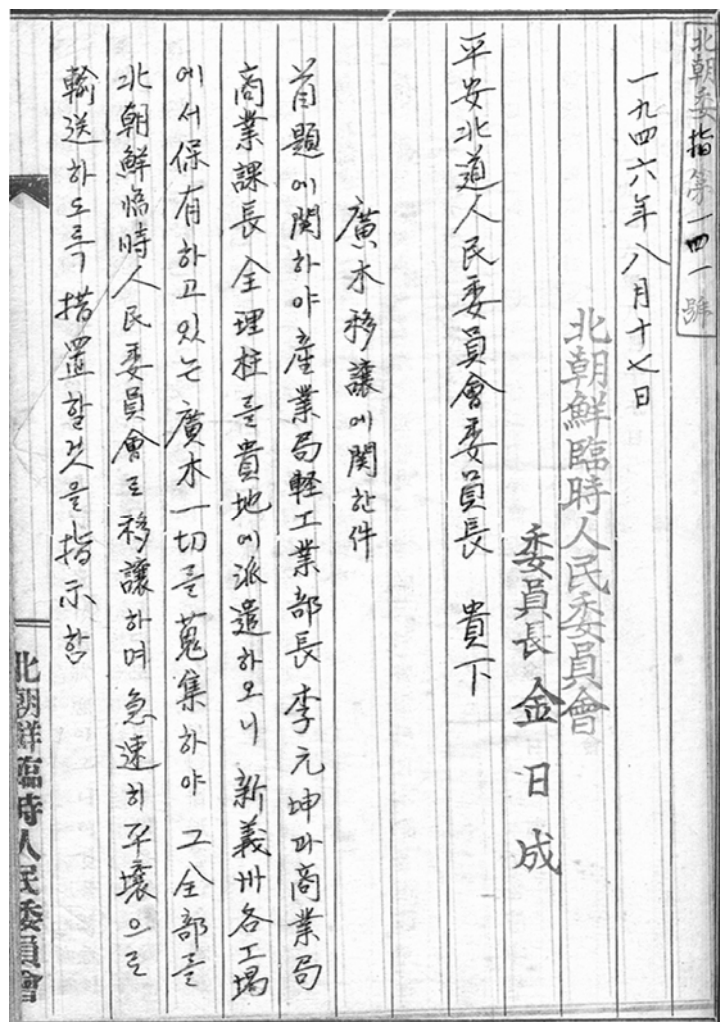 北朝委指第一四一號
一九四六年八月十七日
北朝鮮臨時人民委員會
委員長 金日成
平安北道人民委員會委員長 貴下
廣木移讓에関한件
首題에関하야産業局軽工業部長 李元坤과商業局
商業課長 全理柱를貴地에派遣하오니 新義州各工場
에서保有하고있는廣木一切를蒐集하야 그全部를
北朝鮮臨時人民委員會로移讓하며 急速히平壤으로
輸送하도록措置할것을指示함
北朝鮮臨時人民委員會